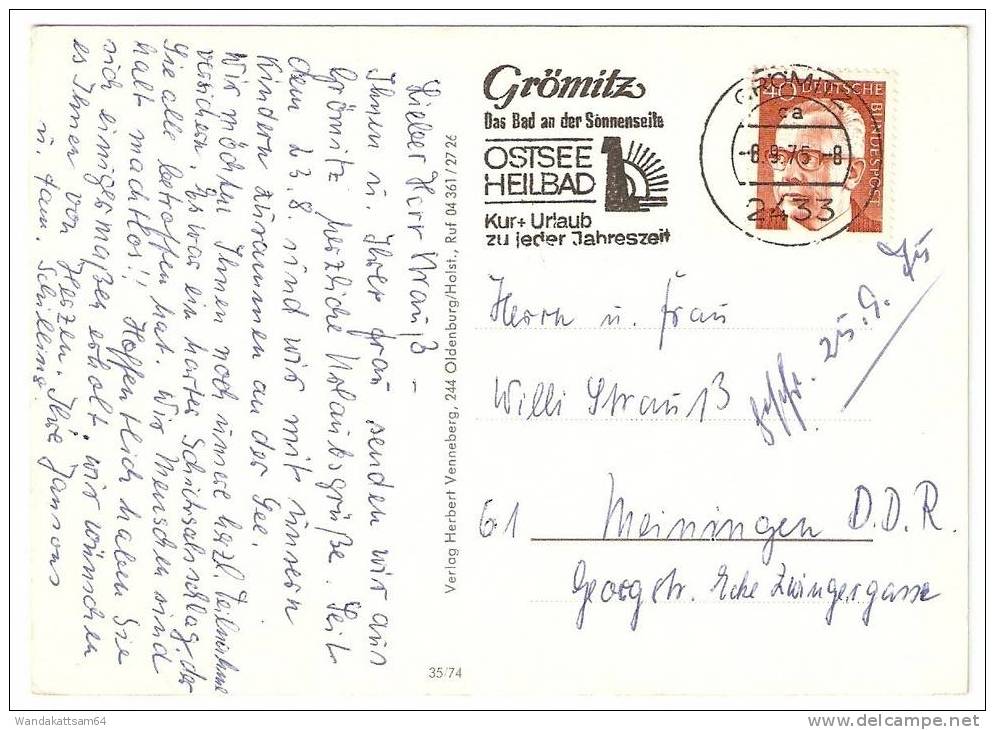 Lieber Herr Strauß –
Ihnen u. Ihrer Frau senden wir aus
Grömitz herzliche Urlaubsgrüße. Seit
dem 23.8. sind wir mit unsern
Kindern zusammen an der See.
Wir möchten Ihnen noch unsere herzl. Teilnahme
versichern. Es war ein harter Schicksalsschlag, der
Sie alle betroffen hat. Wir Menschen sind
halt machtlos!! Hoffentlich haben Sie
sich einigermaßen erholt. wir wünschen
es Ihnen von Herzen. Ihre Jansons
u. Fam. Schilling.
Verlag Herbert Venneberg, 244 Oldenburg/Holst., Ruf 04 361/27 26
35/74
Grömitz
Das Bad an der Sonnenseite
OSTSEE
HEILBAD
Kur+ Urlaub
zu jeder Jahreszeit
GRÖMITZ
ca
-6.9.75-8
2433
40 DEUTSCHE
BUNDESPOST
Herrn u. Frau
Willi Strauß
61 Meiningen D.D.R.
Georgstr. Ecke Zwingergasse
geschr. 25.9.75
Wandakattsam64
www.delcampe.net